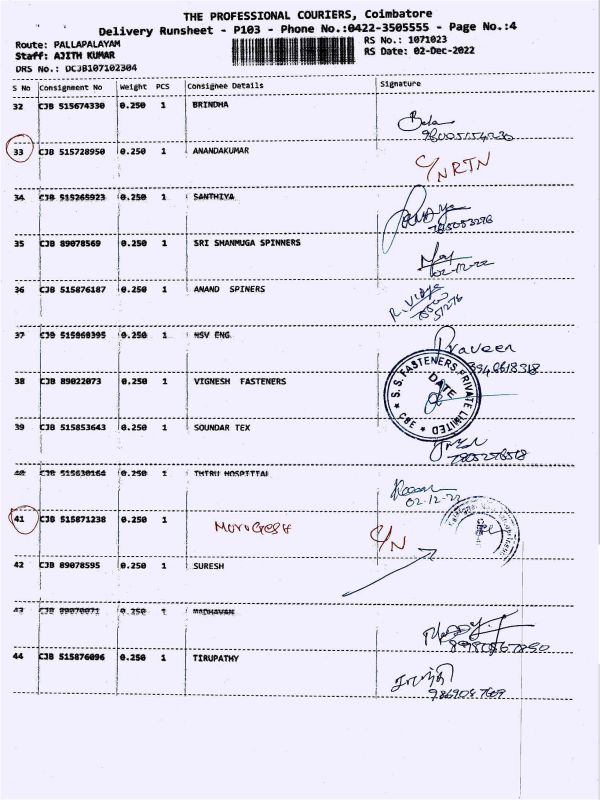 THE PROFESSIONAL COURIERS, Coimbatore
Delivery Runsheet - P103 - Phone No.:0422-3505555 - Page No.:4
Route: PALLAPALAYAM
RS No.: 1071023
Staff: AJITH KUMAR
RS Date: 02-Dec-2022
DRS No.: DCJB107102304
S No Consignment No Weight PCS Consignee Details Signature
32 CJB 515674330 0.250 1 BRINDHA
33 CJB 515728950 0.250 1 ANANDAKUMAR
C/N RTN
34 CJB 515265923 0.250 1 SANTHIYA
35 CJB 89078569 0.250 1 SRI SHANMUGA SPINNERS
02-12-22
36 CJB 515876187 0.250 1 ANAND SPINERS
R. Vidya
37 CJB 515868395 0.250 1 HSV ENG
Praveen
38 CJB 89022073 0.250 1 VIGNESH FASTENERS
S.S. FASTENERS PRIVATE LIMITED
DATE
CBE
39 CJB 515853643 0.250 1 SOUNDAR TEX
40 CJB 515630164 0.250 1 THIRU HOSPITTAL
02-12-22
41 CJB 515871238 0.250 1
MOROGESH
C/N
42 CJB 89078595 0.250 1 SURESH
43 CJB 89070071 0.250 1 MADHAVAN
44 CJB 515876096 0.250 1 TIRUPATHY